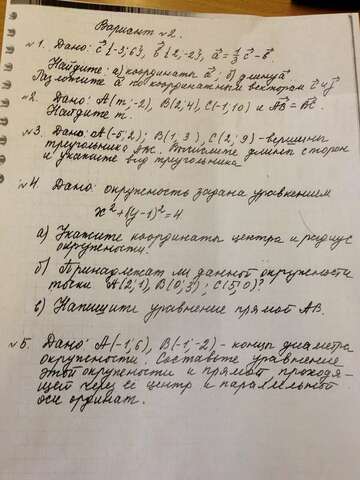 Вариант №2.
№1. Дано: c⃗ {-3;6}, b⃗ {2,-2}, a⃗ = 1/3 c⃗ - b⃗.
Найдите: а) координаты a⃗; б) длину a⃗
Разложите a⃗ по координатным векторам i⃗ и j⃗
№2. Дано: A(m;-2), B(2;4), C(-1,10) и AB = BC.
Найдите m.
№3. Дано: A(-5,2); B(1,3), C(2;9) - вершины
треугольника ABC. Вычислите длины сторон
и укажите вид треугольника
№4. Дано: окружность задана уравнением
x²+(y-1)²=4
а) Укажите координаты центра и радиус
окружности.
б) Принадлежат ли данной окружности
точки A(2;1), B(0;3); C(5;0)?
в) Напишите уравнение прямой AB.
№5. Дано: A(-1;6), B(-1;-2) - концы диаметра
окружности. Составьте уравнение
этой окружности и прямой проходя-
щей через ее центр и параллельной
оси ординат.